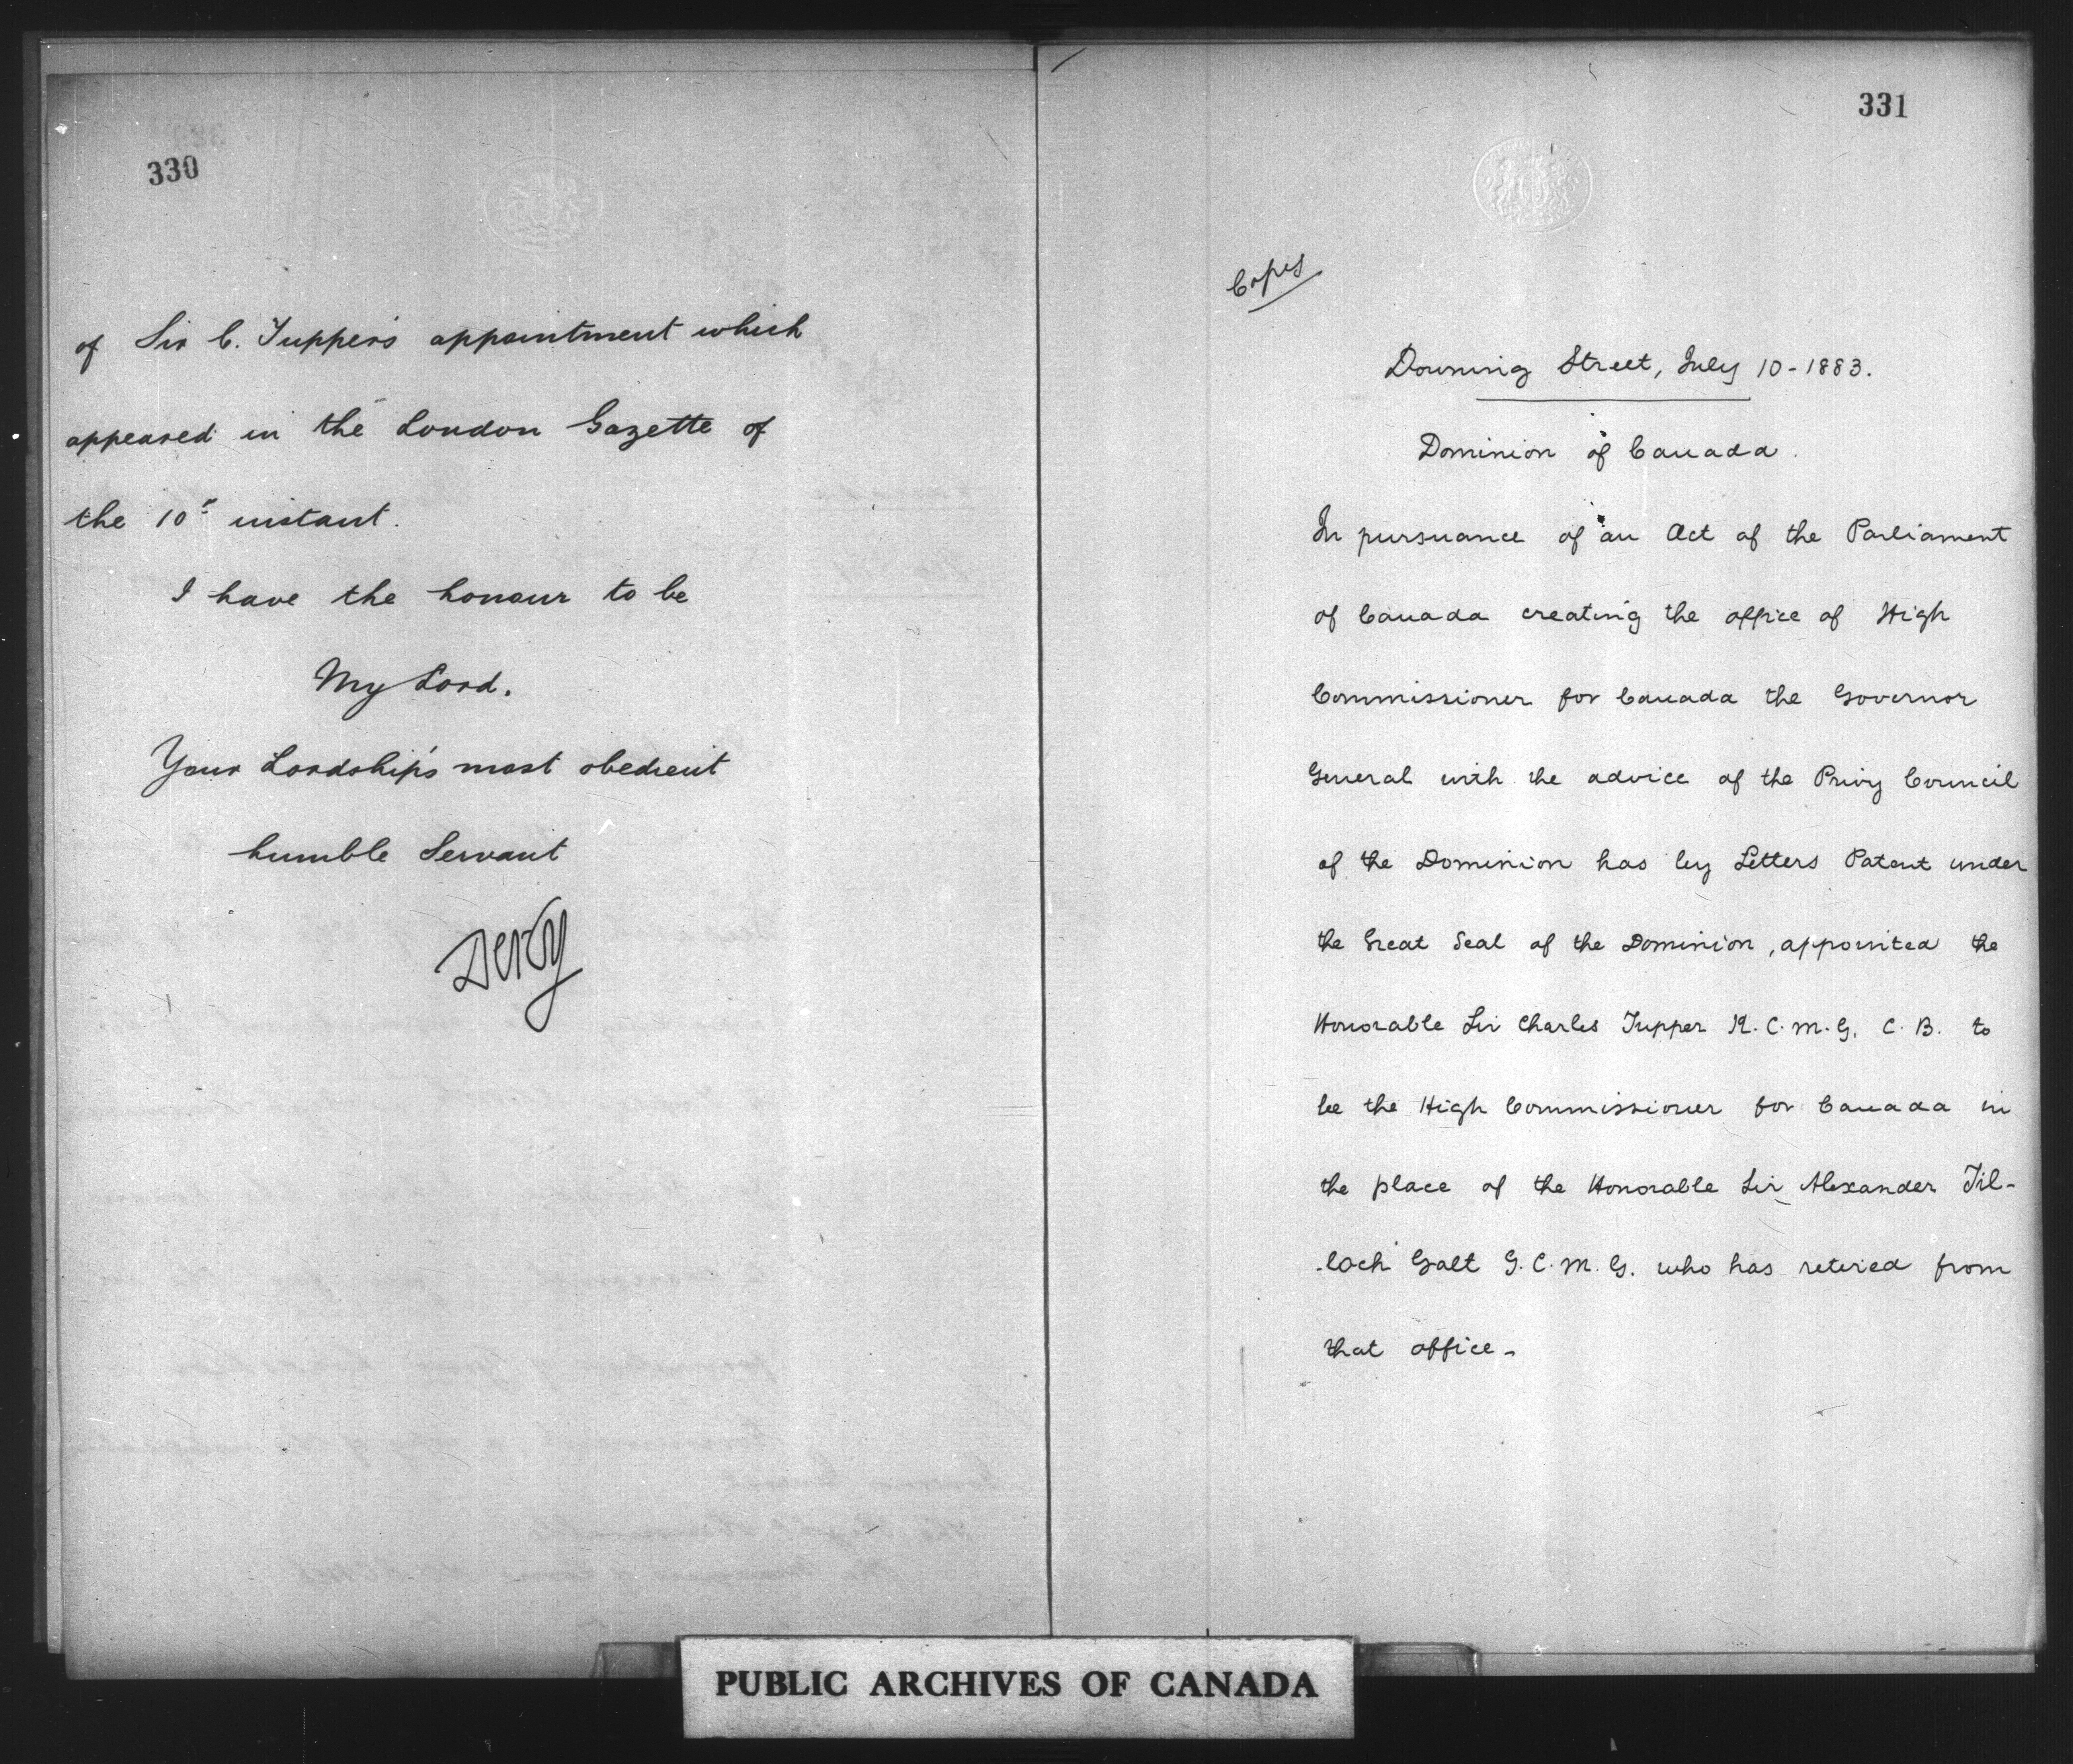 330
of Sir C. Tupper's appointment which
appeared in the London Gazette of
the 10th instant.
I have the honour to be
My Lord.
Your Lordship's most obedient
humble Servant
Derby
331
Copy
Downing Street, July 10 - 1883.
Dominion of Canada.
In pursuance of an Act of the Parliament
of Canada creating the office of High
Commissioner for Canada the Governor
General with the advice of the Privy Council
of the Dominion has by Letters Patent under
the Great Seal of the Dominion, appointed the
Honorable Sir Charles Tupper K.C.M.G. C.B. to
be the High Commissioner for Canada in
the place of the Honorable Sir Alexander Til-
-loch Galt G.C.M.G. who has retired from
that office -
PUBLIC ARCHIVES OF CANADA